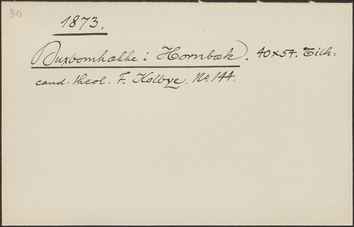 30
1873.
Buxbomhække i Hornbæk. 40x54. Tilh.
cand. theol. F. Kølbye. No. 144.